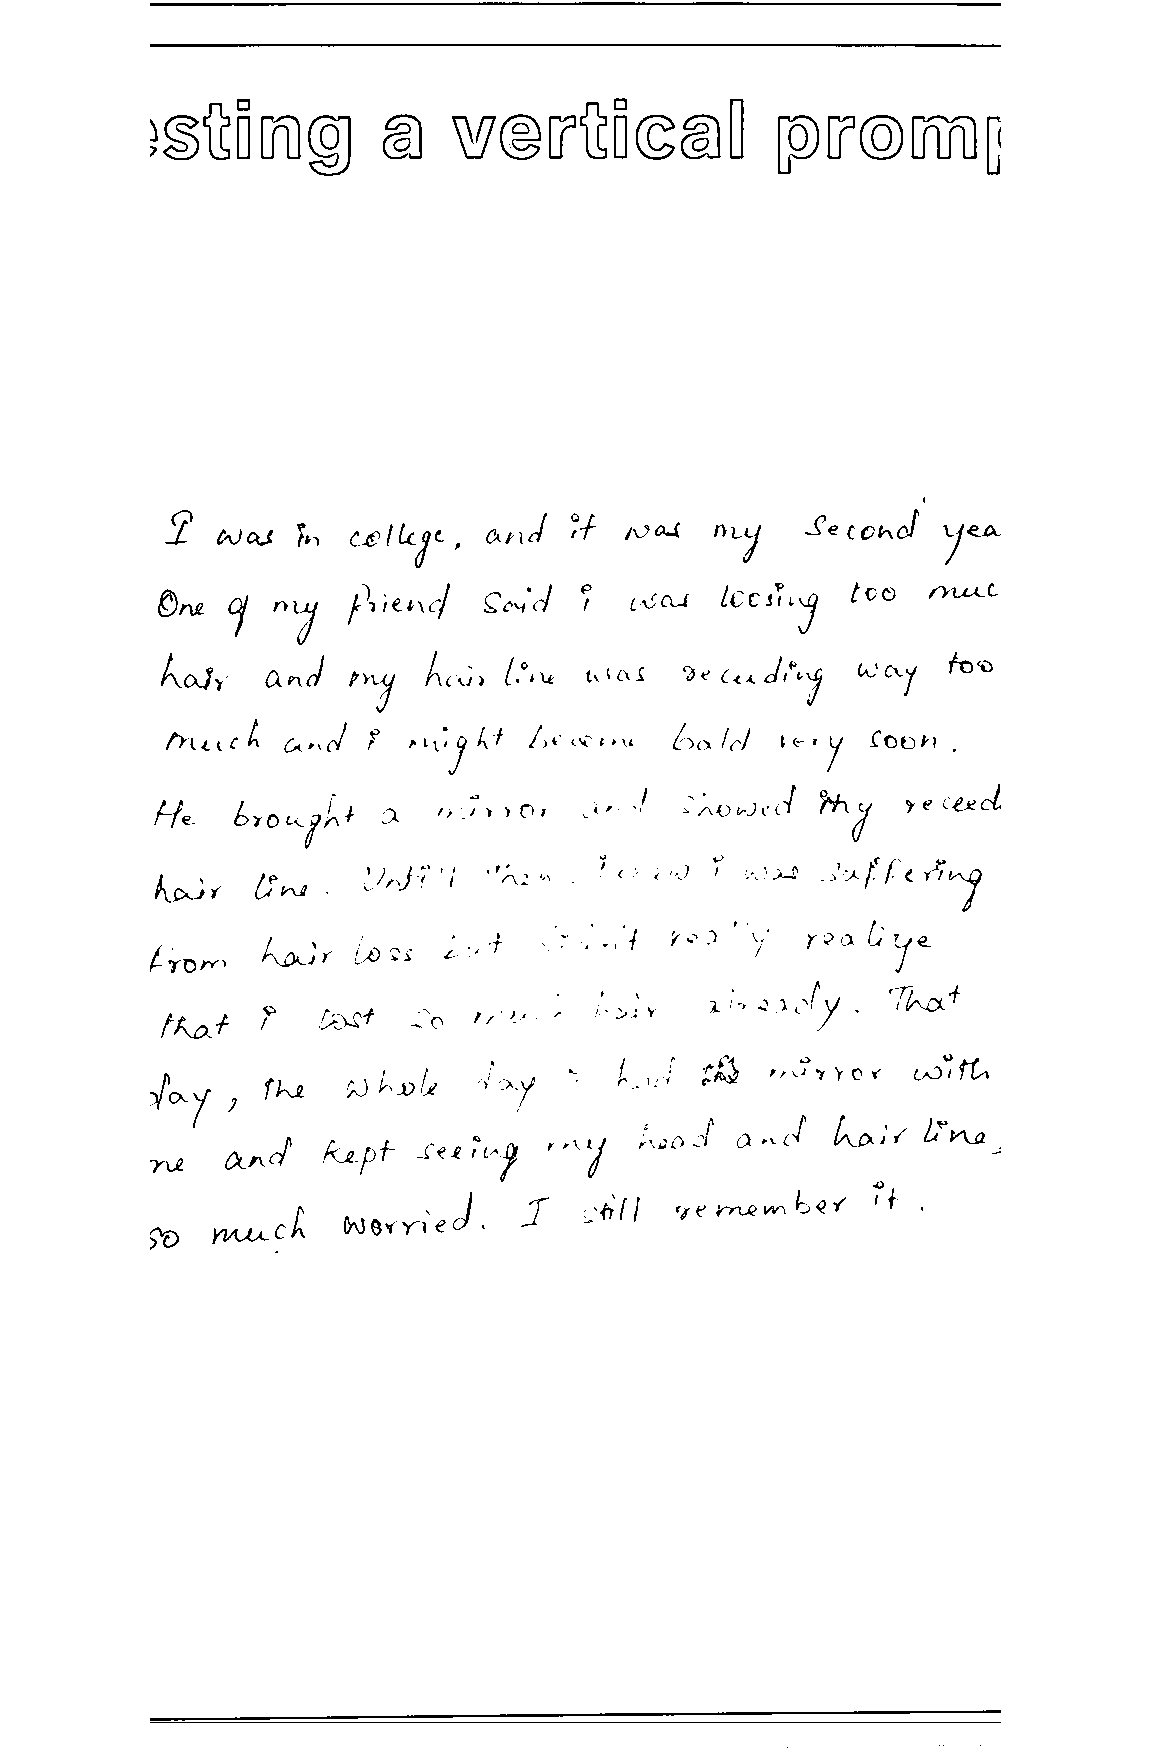 esting a vertical promp
I was in college, and it was my Second yea
One of my friend Said i was loosing too muc
hair and my hair line was receeding way too
much and i might become bald very soon.
He brought a mirror and showed my receed
hair line. Untill then, I was suffering
from hair loss but didn't really realize
that i lost so much hair already. That
day, the whole day i had the mirror with
me and kept seeing my head and hair line,
so much worried. I still remember it.